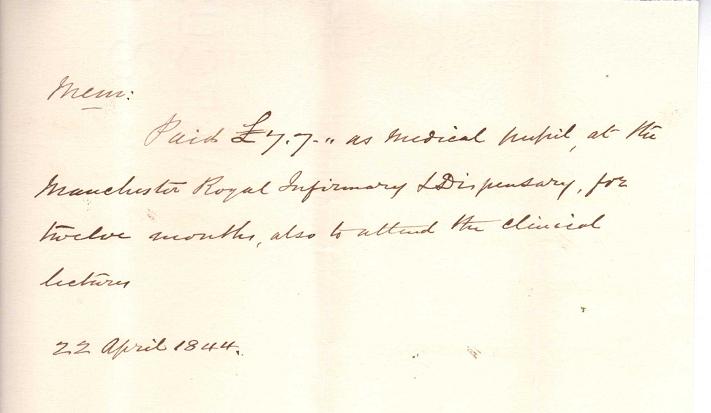 Mem:
Paid £7.7-" as medical pupil, at the
Manchester Royal Infirmary & Dispensary, for
twelve months, also to attend the clinical
lectures
22 April 1844.